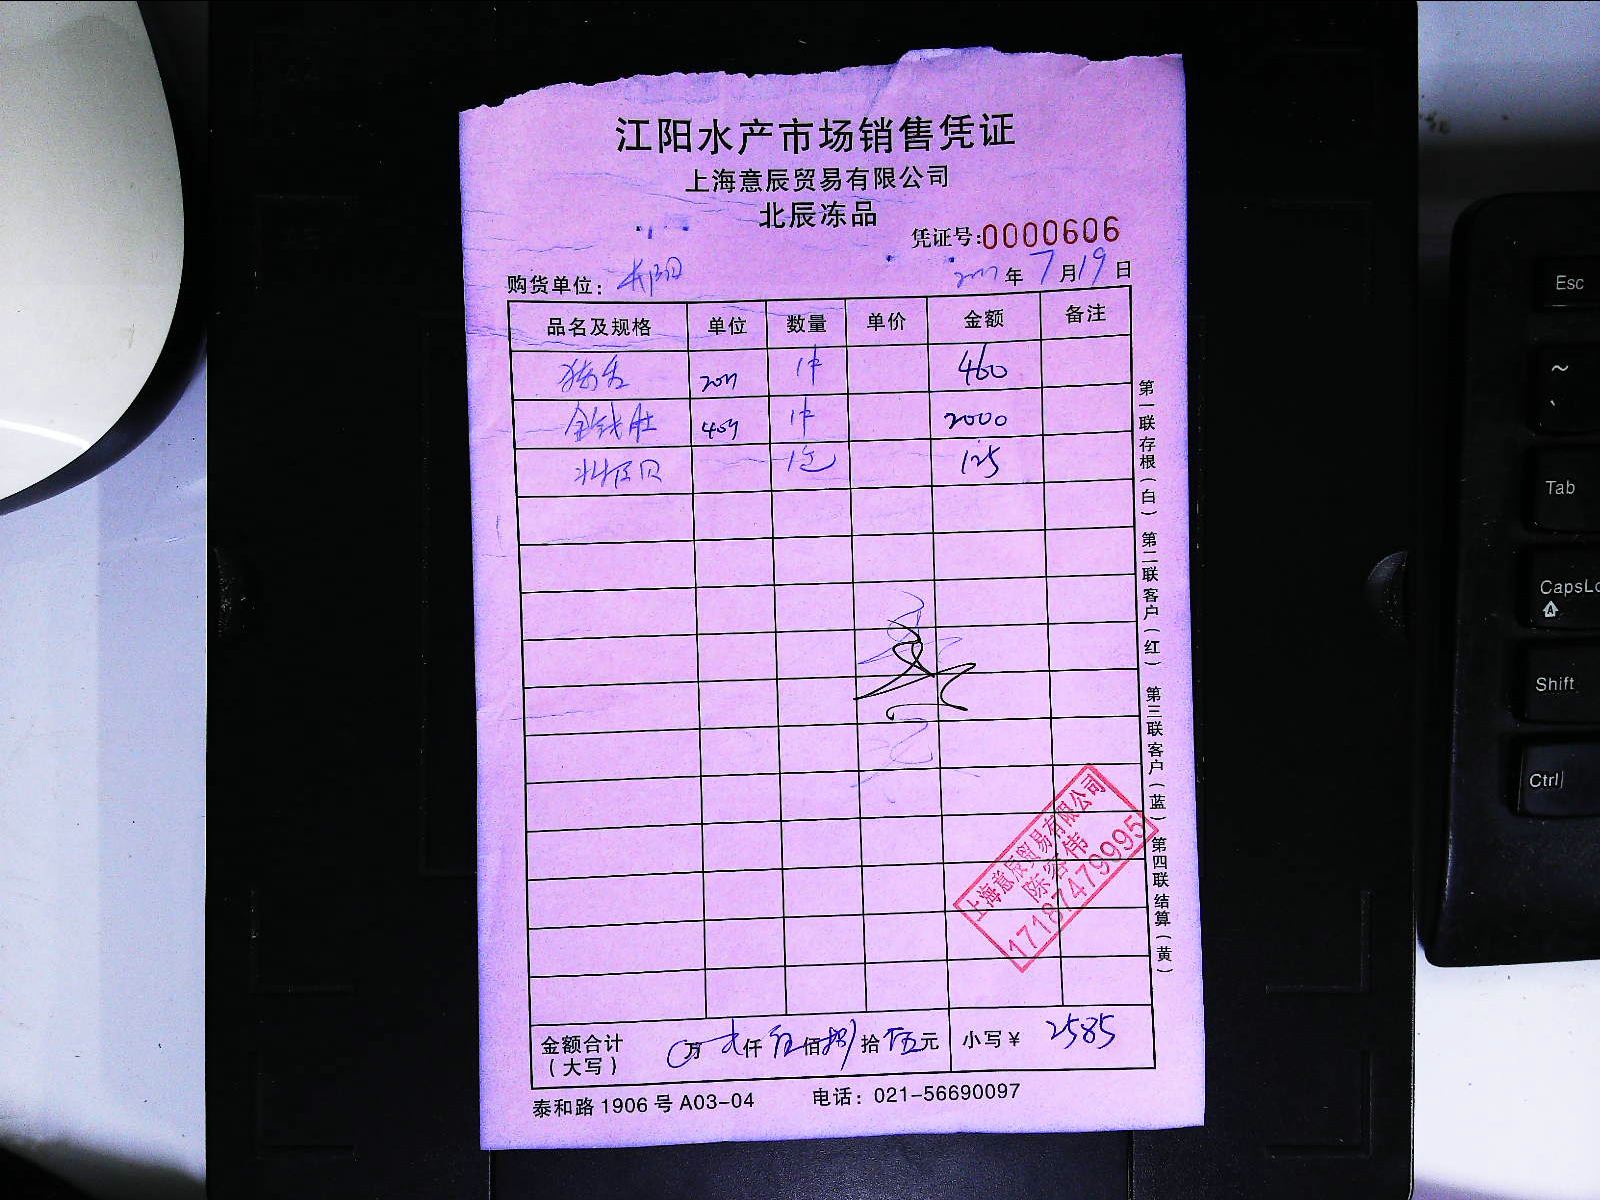 江阳水产市场销售凭证
上海意辰贸易有限公司
北辰冻品
凭证号:0000606
购货单位: 年7月19日
品名及规格 单位 数量 单价 金额 备注
1件 460
金钱肚 1件 2000
1包 125
金额合计(大写) 万 仟伍佰捌拾伍元 小写¥ 2585
泰和路1906号A03-04 电话:021-56690097
第一联存根(白) 第二联客户(红) 第三联客户(蓝) 第四联结算(黄)
上海意辰贸易有限公司
陈容伟
17187479995
Esc
~
`
Tab
CapsLo
A
Shift
Ctrl